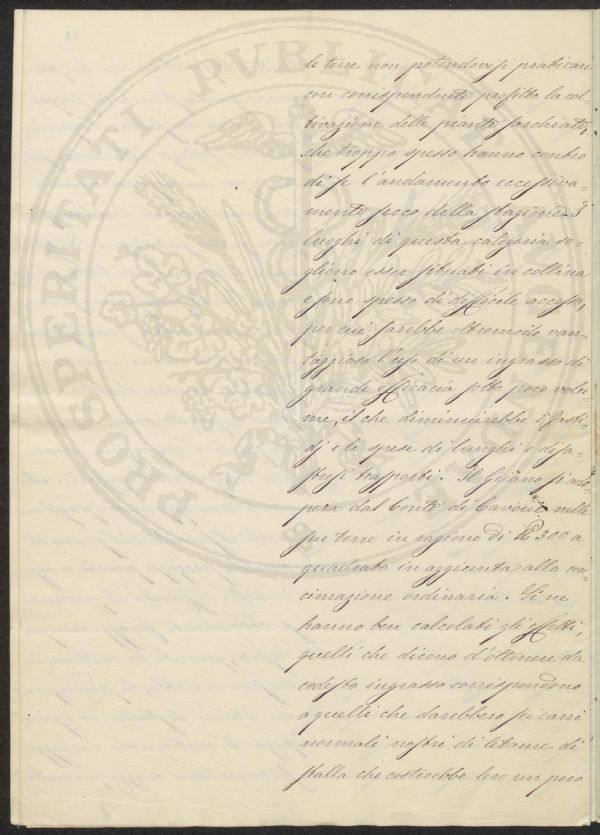 le terre non potendovisi praticare
con corrispondente profitto la col-
tivazione delle piante sarchiate,
che troppo spesso hanno contro
di se l'andamento eccessiva-
mente secco della stagione. I
luoghi di questa categoria so-
gliono esser situati in collina
e sono spesso di difficile accesso,
per cui sarebbe oltremodo van-
taggioso l'uso di un ingrasso di
grande efficacia sotto poco volu-
me, il che diminuirebbe i fasti-
dj e le spese di lunghi e disa-
strosi trasporti. Il Guano si ado-
pera dal Conte di Cavour nelle
sue terre in ragione di 300 a
quadrato in aggiunta alla con-
cimazione ordinaria. Se ne
hanno ben calcolati gli effetti,
quelli che dicono d'ottenere da
codesto ingrasso corrispondono
a quelli che darebbero sei carri
normali nostri di letame di
stalla che costerebbe loro un poco
PROSPERITATI PVBLIC